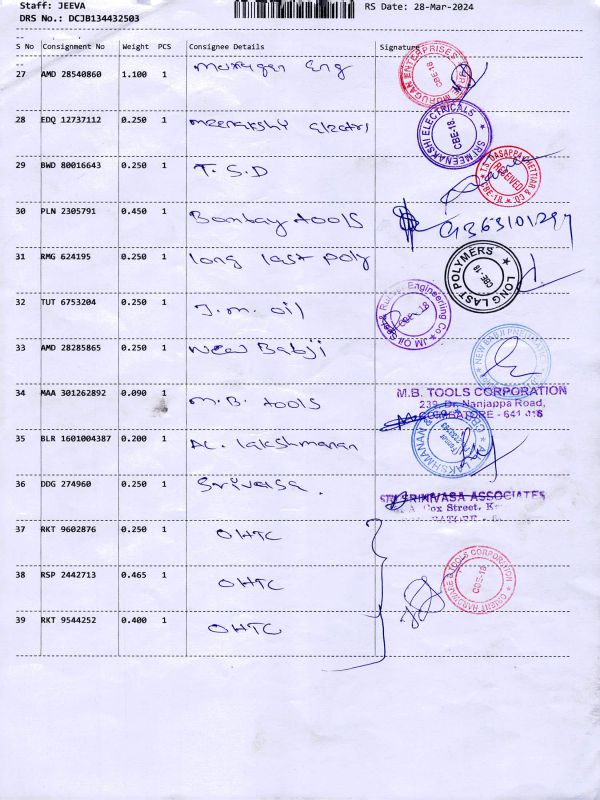 Staff: JEEVA
RS Date: 28-Mar-2024
DRS No.: DCJB134432503
S No Consignment No Weight PCS Consignee Details Signature
27 AMD 28540860 1.100 1 Murugan Eng
MURUGAN ENTERPRISES CBE-18
28 EDQ 12737112 0.250 1 Meenakshi Electri
SRI MEENAKSHI ELECTRICALS CBE-18.
29 BWD 80016643 0.250 1 T.S.D
T.S. DASAPPA CHETTIAR & CO RECEIVED CBE-18
30 PLN 2305791 0.450 1 Bombay tools
9363101297
31 RMG 624195 0.250 1 long last poly
LONG LAST POLYMERS CBE-18
32 TUT 6753204 0.250 1 J.m. oil
Engineering Co JM Oil CBE-18
33 AMD 28285865 0.250 1 New Babji
NEW BABJI PNEUMATIC
34 MAA 301262892 0.090 1 M.B. tools
M.B. TOOLS CORPORATION
239, Dr. Nanjappa Road,
COIMBATORE - 641 018
35 BLR 1601004387 0.200 1 AL. lakshmanan
AL LAKSHMANAN & CBE
36 DDG 274960 0.250 1 Srivatsa.
SRINIVASA ASSOCIATES
Cox Street,
37 RKT 9602876 0.250 1 OHTC
38 RSP 2442713 0.465 1 OHTC
ORIENT HARDWARE & TOOLS CORPORATION CBE-18
39 RKT 9544252 0.400 1 OHTC